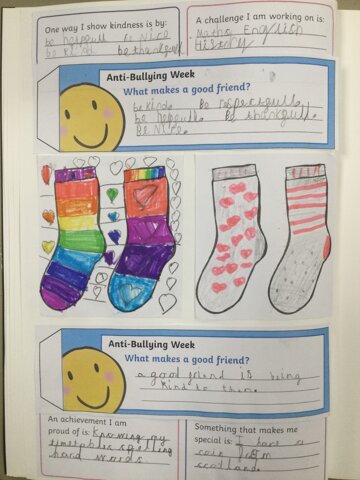 One way I show kindness is by:
be helpfull be Nice
be Kind be thankfull
A challenge I am working on is:
Maths English
History
Anti-Bullying Week
What makes a good friend?
be kind. Be respectfull.
be helpfull. Be thankfull.
Be Nice.
Anti-Bullying Week
What makes a good friend?
a good friend is being
kind to them.
An achievement I am
proud of is: Knowing my
timetables spelling
hard words
Something that makes me
special is: I have a
from
scotland.